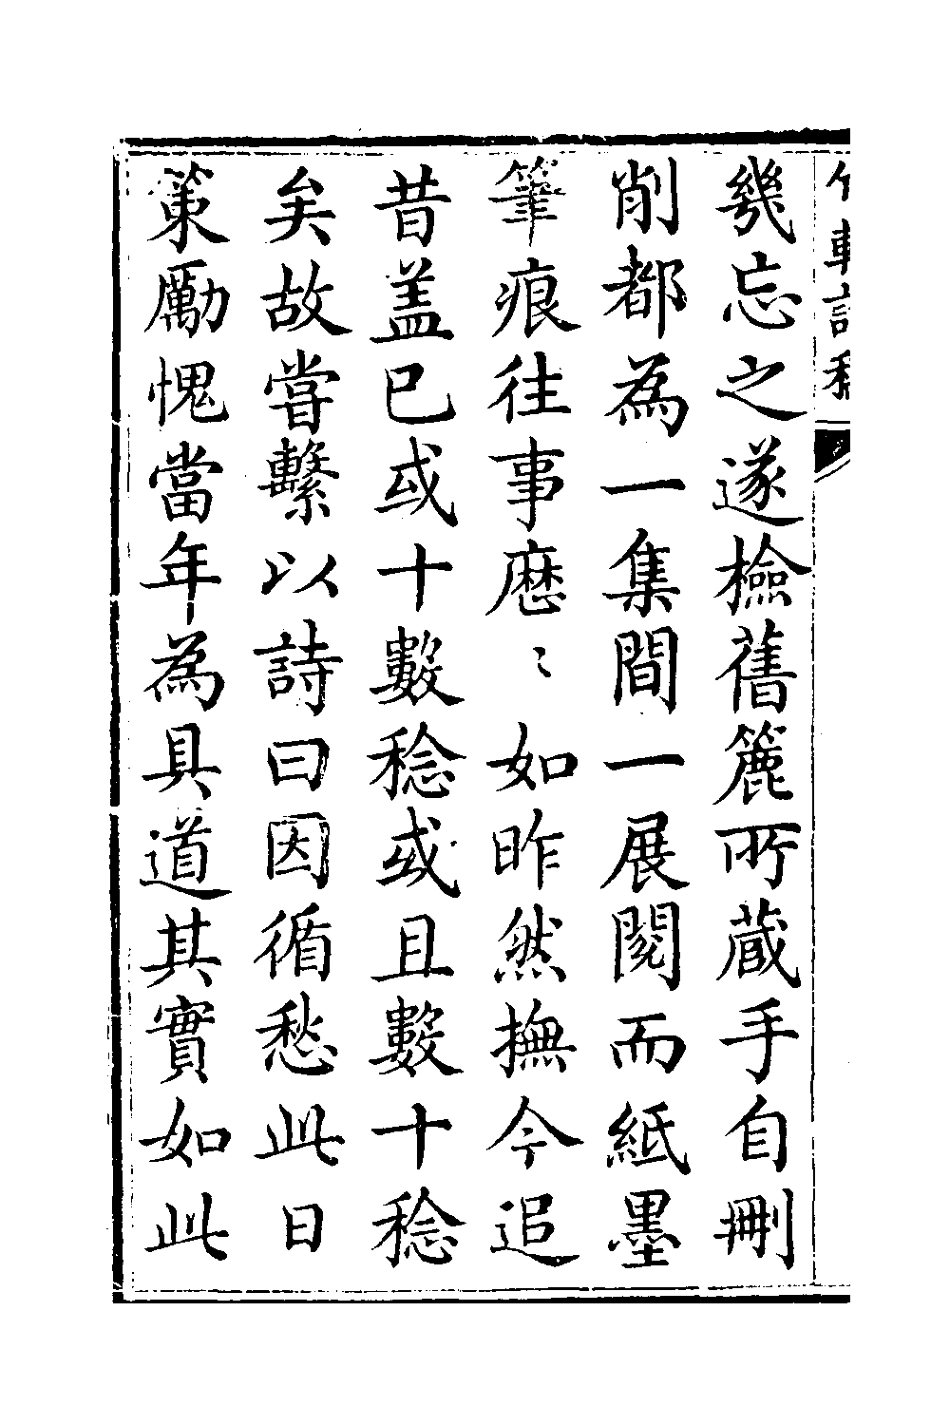 幾忘之遂檢舊簏所蔵手自刪
削都為一集間一展閱而紙墨
筆痕往事歴〻如昨然撫今追
昔盖已或十數稔或且數十稔
矣故嘗繫以詩曰因循愁此日
策勵愧當年為具道其實如此